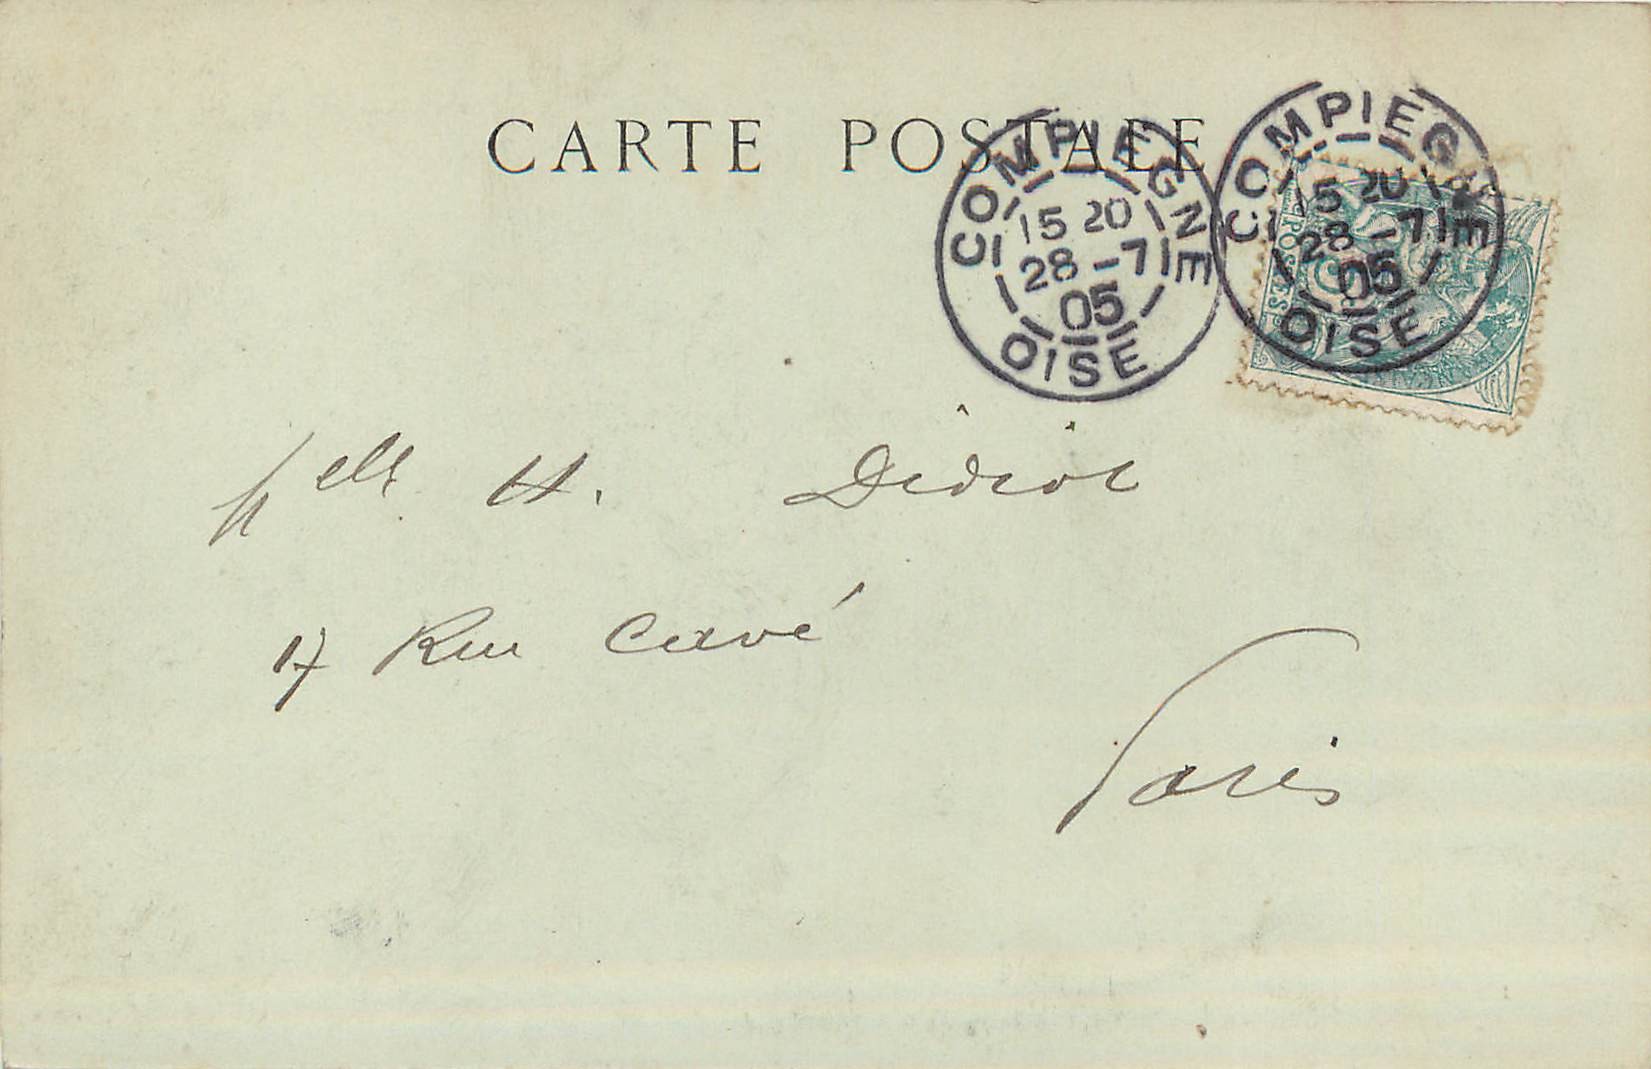 CARTE POSTALE
COMPIEGNE
15 20
28 -7
05
OISE
COMPIEGNE
15 20
28 -7
05
OISE
POSTES
Melle H. Didiot
17 Rue Cavé
Paris